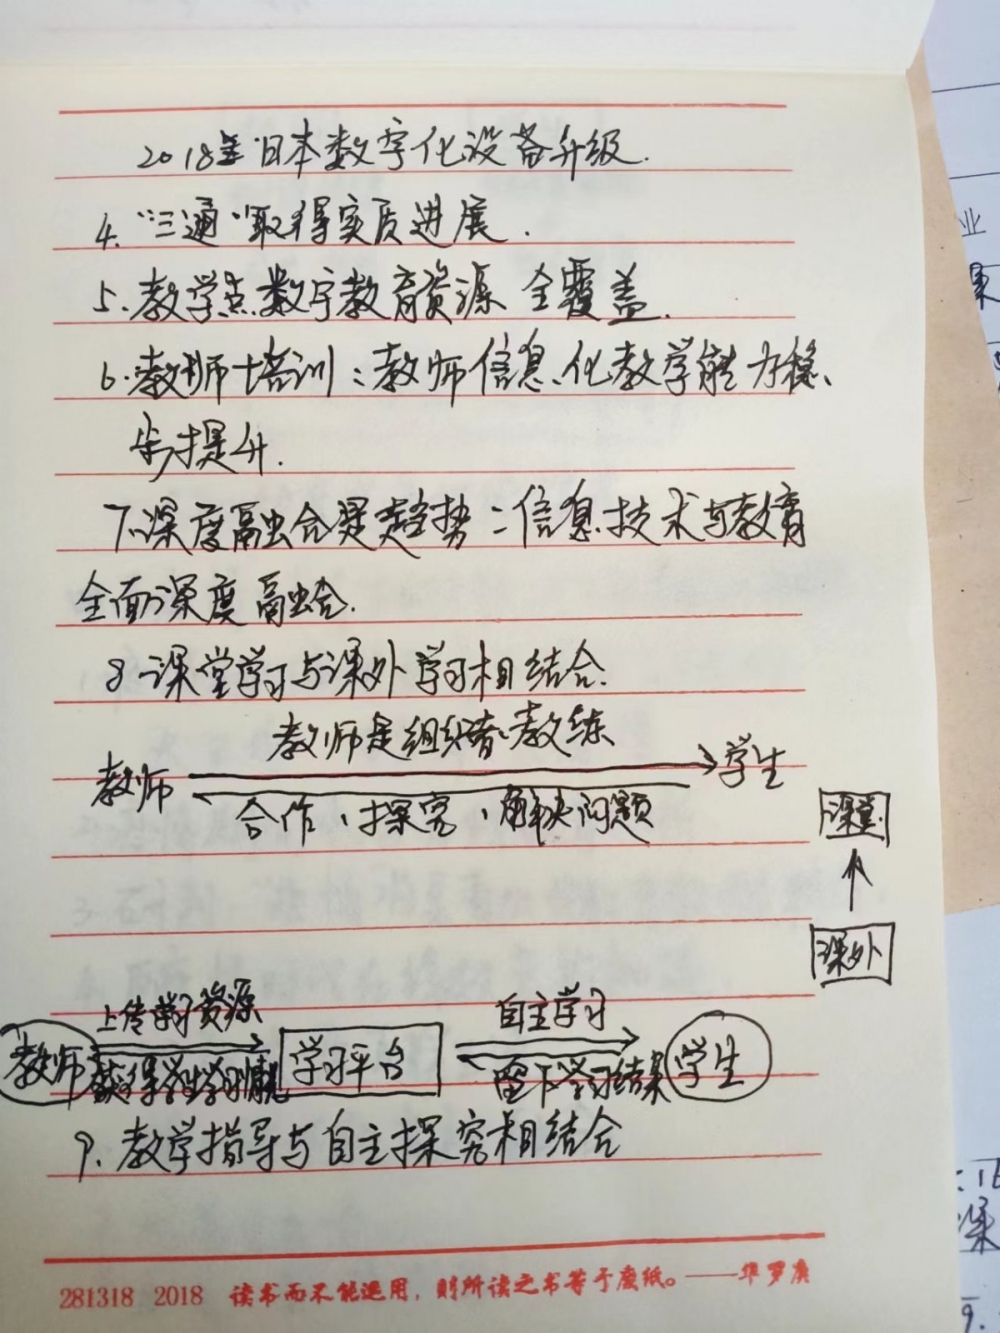 2018年日本数字化设备升级.
4. “三通”取得实质进展.
5. 教学点数字教育资源 全覆盖.
6. 教师培训：教师信息化教学能力稳、
步提升.
7. 深度融合是趋势：信息技术与教育
全面深度融合.
8 课堂学习与课外学习相结合.
教师是组织者、教练
教师
学生
合作、探究、解决问题
课堂
课外
上传学习资源
自主学习
教师
学习平台
学生
获得学生学习情况
留下学习结果
9. 教学指导与自主探究相结合
281318 2018 读书而不能运用，则所读之书等于废纸。——华罗庚
业
果
课
9.